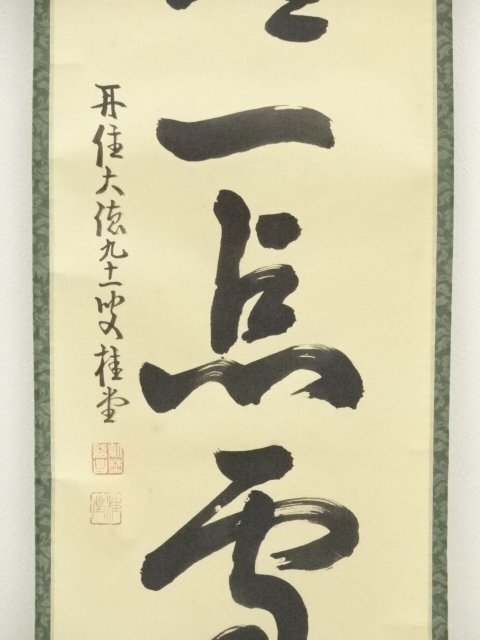 一点雪
再住大徳九十一叟桂堂